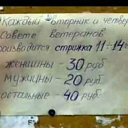 Каждый вторник и четверг
Совете Ветеранов
производится стрижка 11-14ч
женщины - 30 руб
мужчины - 20 руб.
остальные - 40 руб.